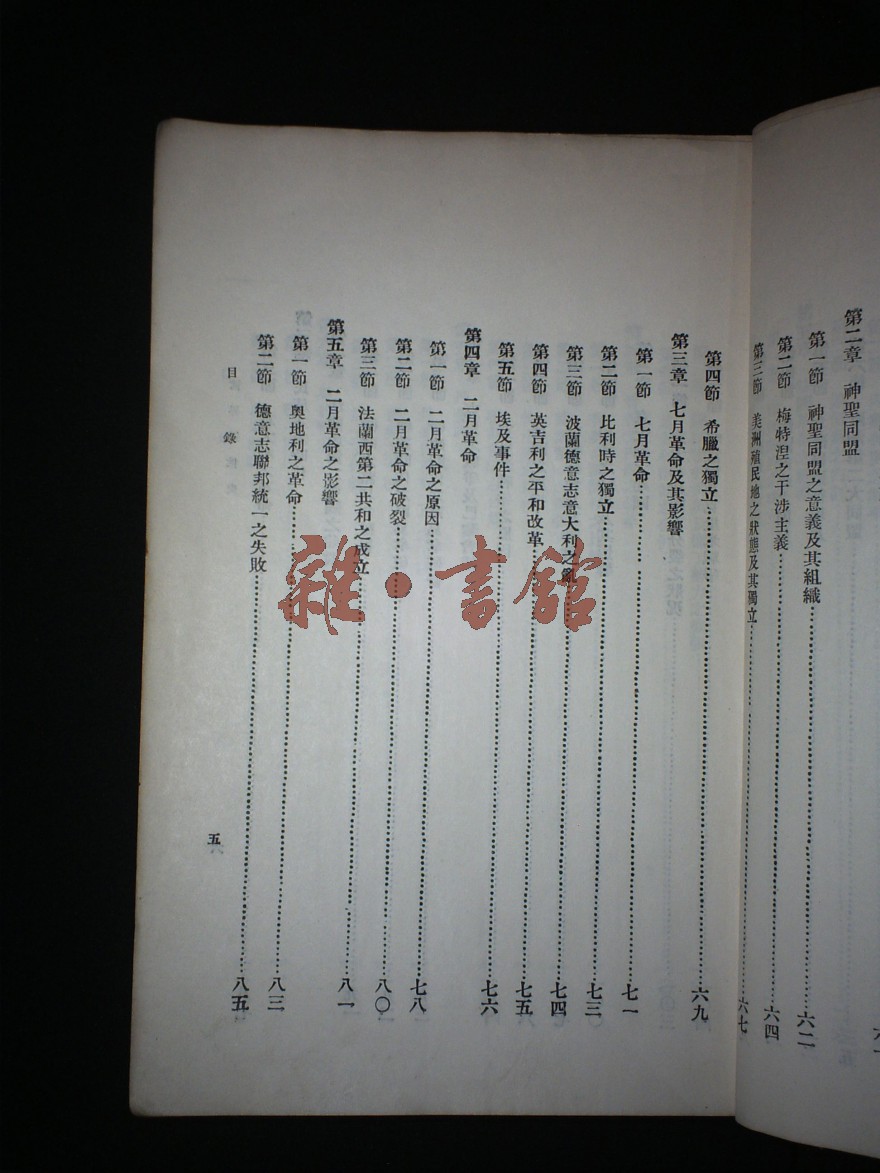 第二章 神聖同盟
第一節 神聖同盟之意義及其組織……六二
第二節 梅特涅之干涉主義……六四
第三節 美洲殖民地之狀態及其獨立……六七
第四節 希臘之獨立……六九
第三章 七月革命及其影響
第一節 七月革命……七一
第二節 比利時之獨立……七三
第三節 波蘭德意志意大利之亂……七四
第四節 英吉利之平和改革……七五
第五節 埃及事件……七六
第四章 二月革命
第一節 二月革命之原因……七八
第二節 二月革命之破裂……八〇
第三節 法蘭西第二共和之成立……八一
第五章 二月革命之影響
第一節 奧地利之革命……八三
第二節 德意志聯邦統一之失敗……八五
目錄
五
雜·書館